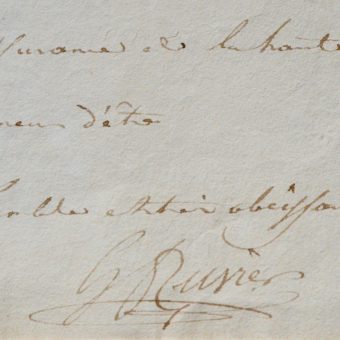 assurance de la haute
neur d'être
humble et très obéissan
G Ruvier